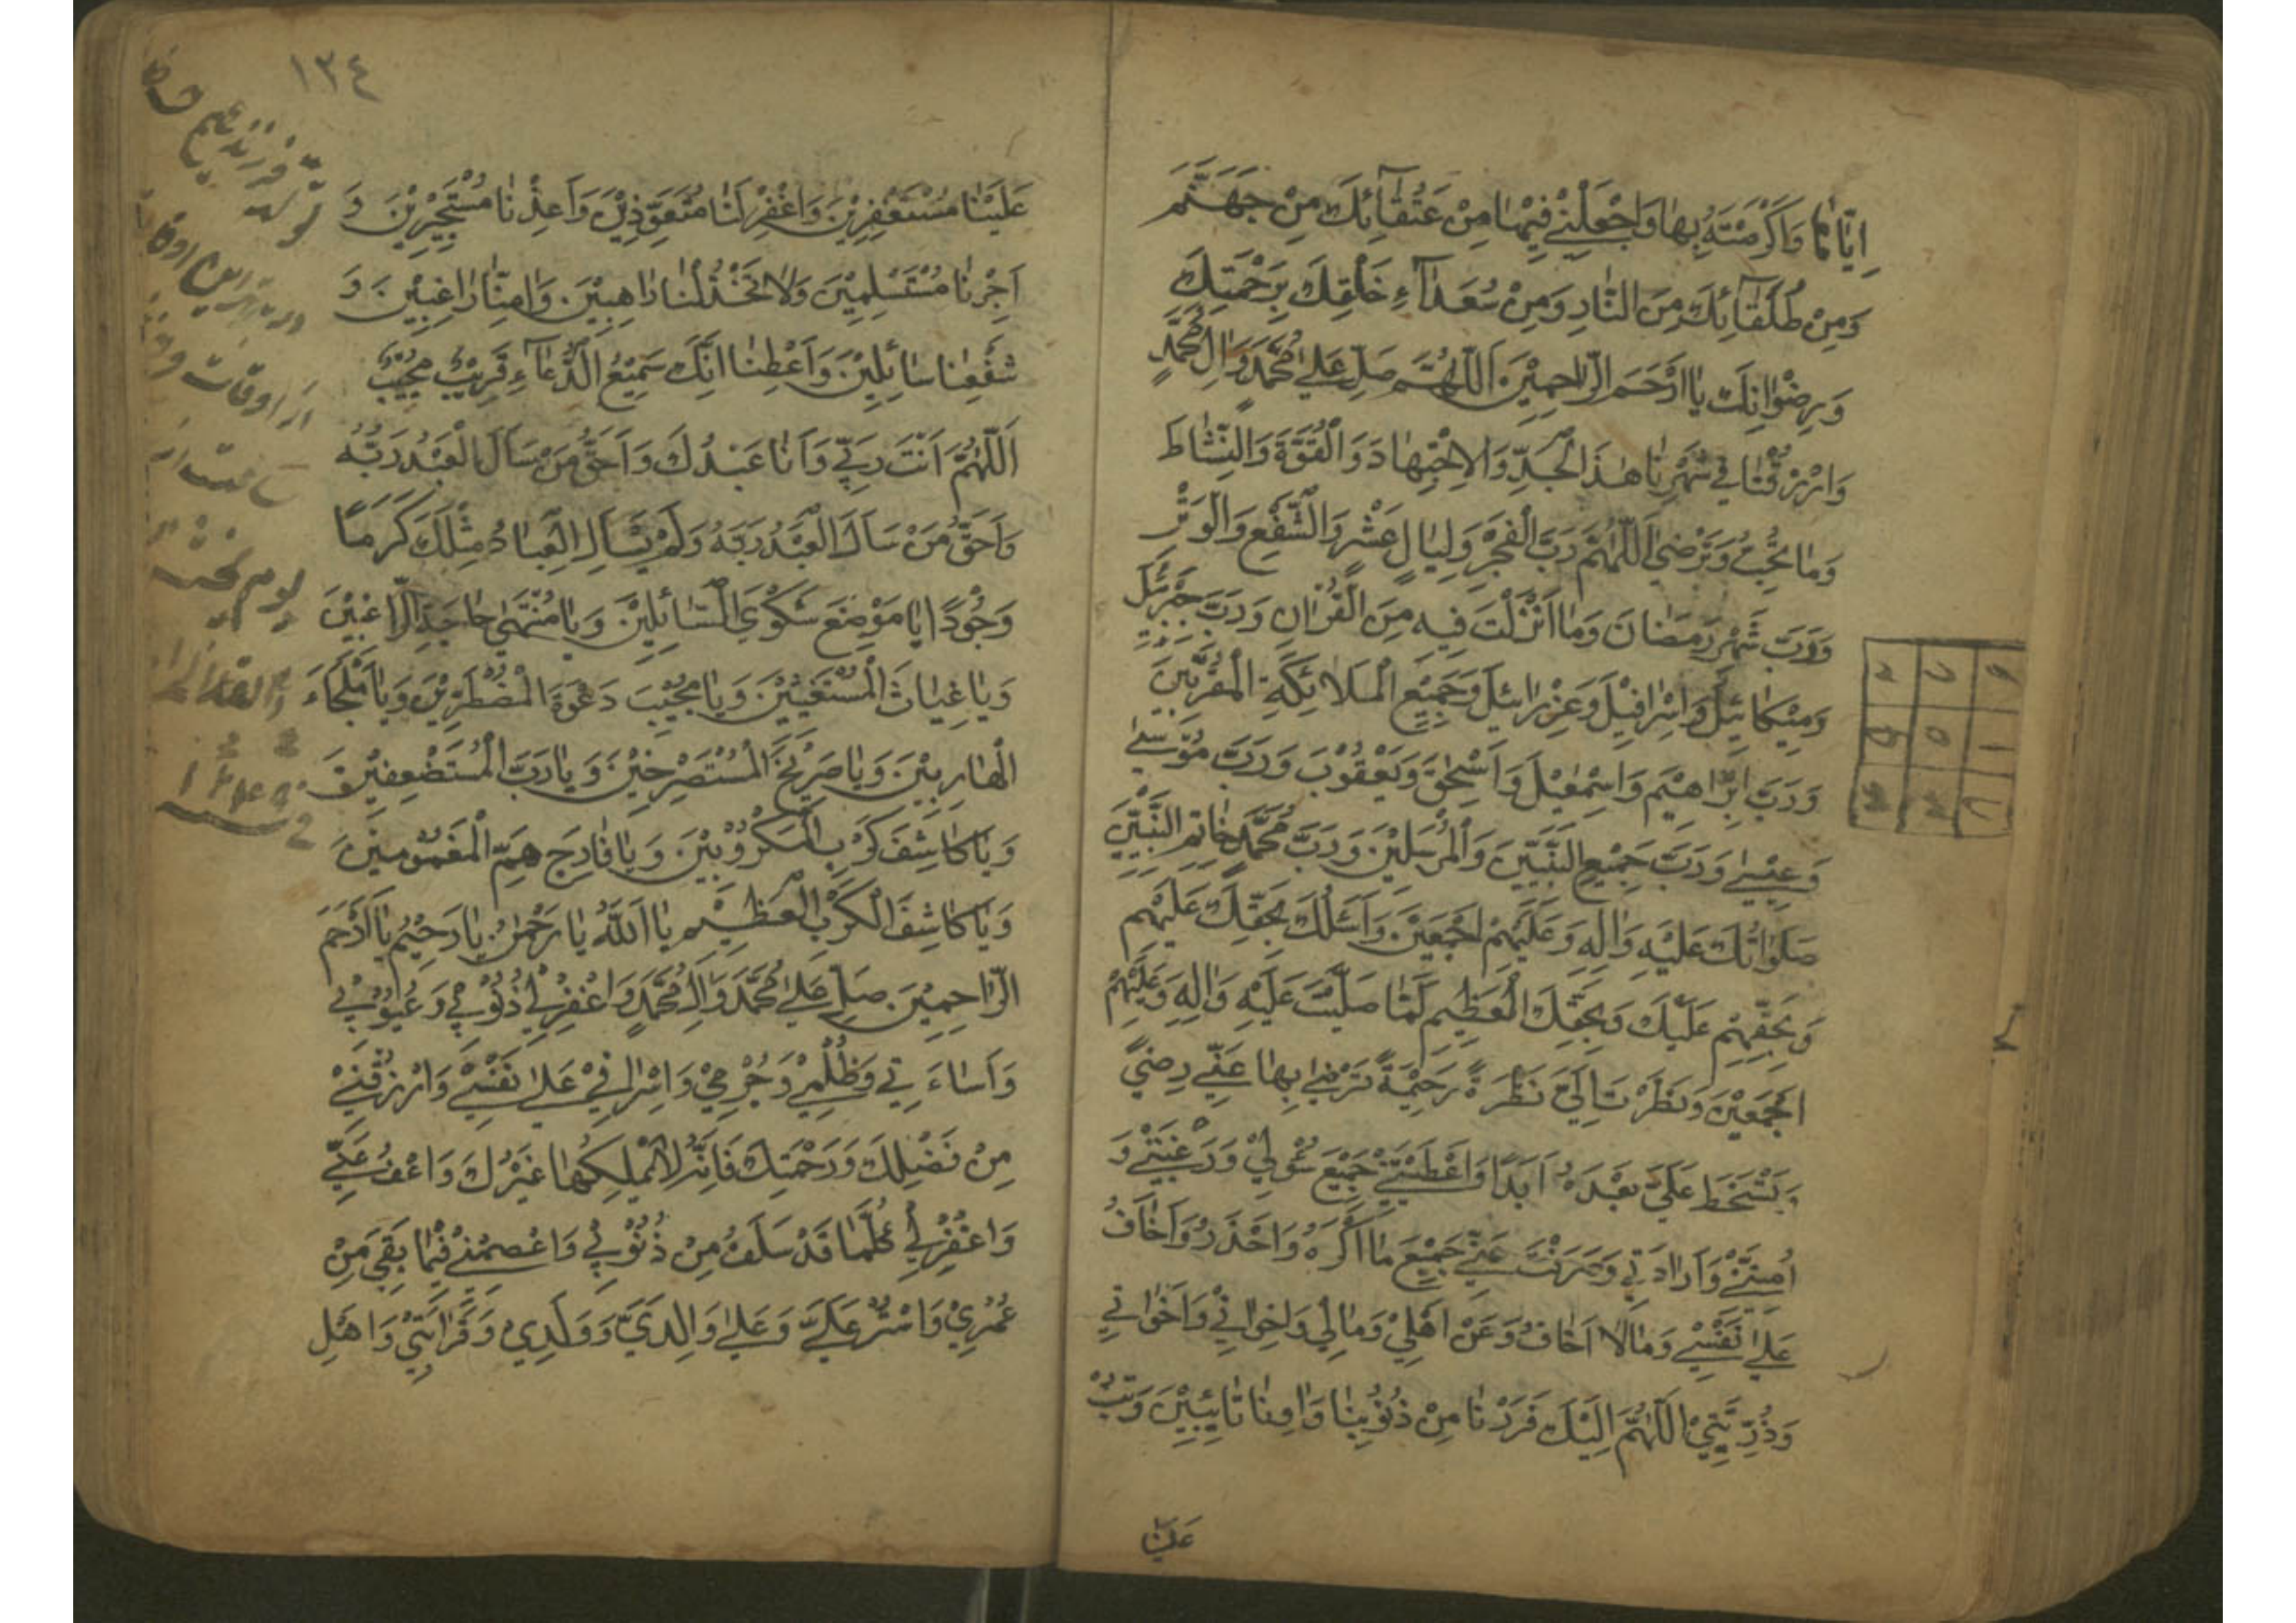 اِيّٰاهٰا وَاَكْرَمْتَهُ بِهٰا وَاجْعَلْنِيْ فِيْهٰا مِنْ عُتَقٰآئِكَ مِنْ جَهَنَّمَ
وَمِنْ طُلَقٰآئِكَ مِنَ النّٰارِ وَمِنْ سُعَدٰآءِ خَلْقِكَ بِرَحْمَتِكَ
وَرِضْوٰانِكَ يٰا اَرْحَمَ الرّٰاحِمِيْنَ اَللّٰهُمَّ صَلِّ عَلىٰ مُحَمَّدٍ وَاٰلِ مُحَمَّدٍ
وَارْزُقْنٰا فِي شَهْرِنٰا هٰذَا الْجِدَّ وَالاِجْتِهٰادَ وَالْقُوَّةَ وَالنِّشٰاطَ
وَمٰا تُحِبُّ وَتَرْضىٰ اَللّٰهُمَّ رَبَّ الْفَجْرِ وَلَيٰالٍ عَشْرٍ وَالشَّفْعِ وَالْوَتْرِ
وَرَبَّ شَهْرِ رَمَضٰانَ وَمٰا اَنْزَلْتَ فِيهِ مِنَ الْقُرْاٰنِ وَرَبَّ جَبْرَئِيلَ
وَمِيْكٰائِيلَ وَاِسْرٰافِيْلَ وَعَزْرٰائِيلَ وَجَمِيْعِ الْمَلاٰئِكَةِ الْمُقَرَّبِيْنَ
وَرَبَّ اِبْرٰاهِيْمَ وَاِسْمٰعِيْلَ وَاِسْحٰقَ وَيَعْقُوْبَ وَرَبَّ مُوْسىٰ
وَعِيْسىٰ وَرَبَّ جَمِيْعِ النَّبِيّٖنَ وَالْمُرْسَلِيْنَ وَرَبَّ مُحَمَّدٍ خٰاتَمِ النَّبِيّٖنَ
صَلَوٰاتُكَ عَلَيْهِ وَاٰلِهِ وَعَلَيْهِمْ اَجْمَعِيْنَ وَاَسْئَلُكَ بِحَقِّكَ عَلَيْهِمْ
وَبِحَقِّهِمْ عَلَيْكَ وَبِحَقِّكَ الْعَظِيْمِ لَمّٰا صَلَّيْتَ عَلَيْهِ وَاٰلِهِ وَعَلَيْهِمْ
اَجْمَعِيْنَ وَنَظَرْتَ اِلَيَّ نَظْرَةً رَحِيْمَةً تَرْضىٰ بِهٰا عَنِّي رِضىً
تَسْخَطُ عَلَيَّ بَعْدَهُ اَبَدًا وَاَعْطَيْتَنِيْ جَمِيْعَ سُؤْلِيْ وَرَغْبَتِيْ وَ
اُمْنِيَّتِيْ وَاِرٰادَتِي وَصَرَفْتَ عَنِّي جَمِيْعَ مٰا اَكْرَهُ وَاَحْذَرُ وَاَخٰافُ
عَلىٰ نَفْسِيْ وَمٰا لاٰ اَخٰافُ وَعَنْ اَهْلِيْ وَمٰالِيْ وَاِخْوٰانِيْ وَاَخَوٰاتِيْ
وَذُرِّيَّتِيْ اَللّٰهُمَّ اِلَيْكَ فَرَرْنٰا مِنْ ذُنُوْبِنٰا وَاٰوِنٰا تٰائِبِيْنَ وَتُبْ
عَلَيْنٰا
١٣٤
عَلَيْنٰا مُسْتَغْفِرِيْنَ وَاغْفِرْ لَنٰا مُتَعَوِّذِيْنَ وَاَعِذْنٰا مُسْتَجِيْرِيْنَ وَ
اَجِرْنٰا مُسْتَسْلِمِيْنَ وَلاٰ تَخْذُلْنٰا رٰاهِبِيْنَ وَاٰمِنّٰا رٰاغِبِيْنَ وَ
شَفِّعْنٰا سٰائِلِيْنَ وَاَعْطِنٰا اِنَّكَ سَمِيْعُ الدُّعٰآءِ قَرِيْبٌ مُجِيْبٌ
اَللّٰهُمَّ اَنْتَ رَبِّي وَاَنٰا عَبْدُكَ وَاَحَقُّ مَنْ سَاَلَ الْعَبْدُ رَبُّهُ
وَاَحَقُّ مَنْ سَاَلَ الْعَبْدُ رَبَّهُ وَلَمْ يَسْاَلِ الْعِبٰادُ مِثْلَكَ كَرَمًا
وَجُوْدًا يٰا مَوْضِعَ شَكْوَى السّٰائِلِيْنَ وَيٰا مُنْتَهىٰ حٰاجَةِ الرّٰاغِبِيْنَ
وَيٰا غِيٰاثَ الْمُسْتَغِيْثِيْنَ وَيٰا مُجِيْبَ دَعْوَةِ الْمُضْطَرِّيْنَ وَيٰا مَلْجَاءَ
الْهٰارِبِيْنَ وَيٰا صَرِيْخَ الْمُسْتَصْرِخِيْنَ وَيٰا رَبَّ الْمُسْتَضْعَفِيْنَ
وَيٰا كٰاشِفَ كَرْبِ الْمَكْرُوْبِيْنَ وَيٰا فٰارِجَ هَمِّ الْمَغْمُوْمِيْنَ
وَيٰا كٰاشِفَ الْكَرْبِ الْعَظِيْمِ يٰا اَللّٰهُ يٰا رَحْمٰنُ يٰا رَحِيْمُ يٰا اَرْحَمَ
الرّٰاحِمِيْنَ صَلِّ عَلىٰ مُحَمَّدٍ وَاٰلِ مُحَمَّدٍ وَاغْفِرْ لِيْ ذُنُوْبِيْ وَعُيُوْبِيْ
وَاِسٰاءَتِي وَظُلْمِيْ وَجُرْمِيْ وَاِسْرٰافِيْ عَلىٰ نَفْسِيْ وَارْزُقْنِيْ
مِنْ فَضْلِكَ وَرَحْمَتِكَ فَاِنَّهُ لاٰ يَمْلِكُهٰا غَيْرُكَ وَاعْفُ عَنِّي
وَاغْفِرْ لِيْ كُلَّمٰا قَدْ سَلَفَ مِنْ ذُنُوْبِيْ وَاعْصِمْنِيْ فِيْمٰا بَقِيَ مِنْ
عُمْرِيْ وَاسْتُرْ عَلَيَّ وَعَلىٰ وٰالِدَيَّ وَوَلَدِي وَقَرٰابَتِيْ وَاَهْلِ
تولد فرزندم
از اوقات
ساعت
يوم
في